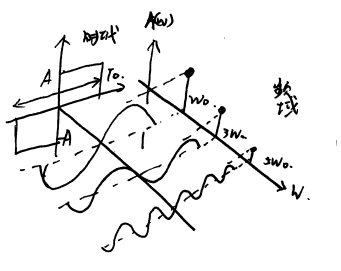 时域
A(w)
A
T₀.
-A
1
W₀
3W₀
5W₀.
域
W.